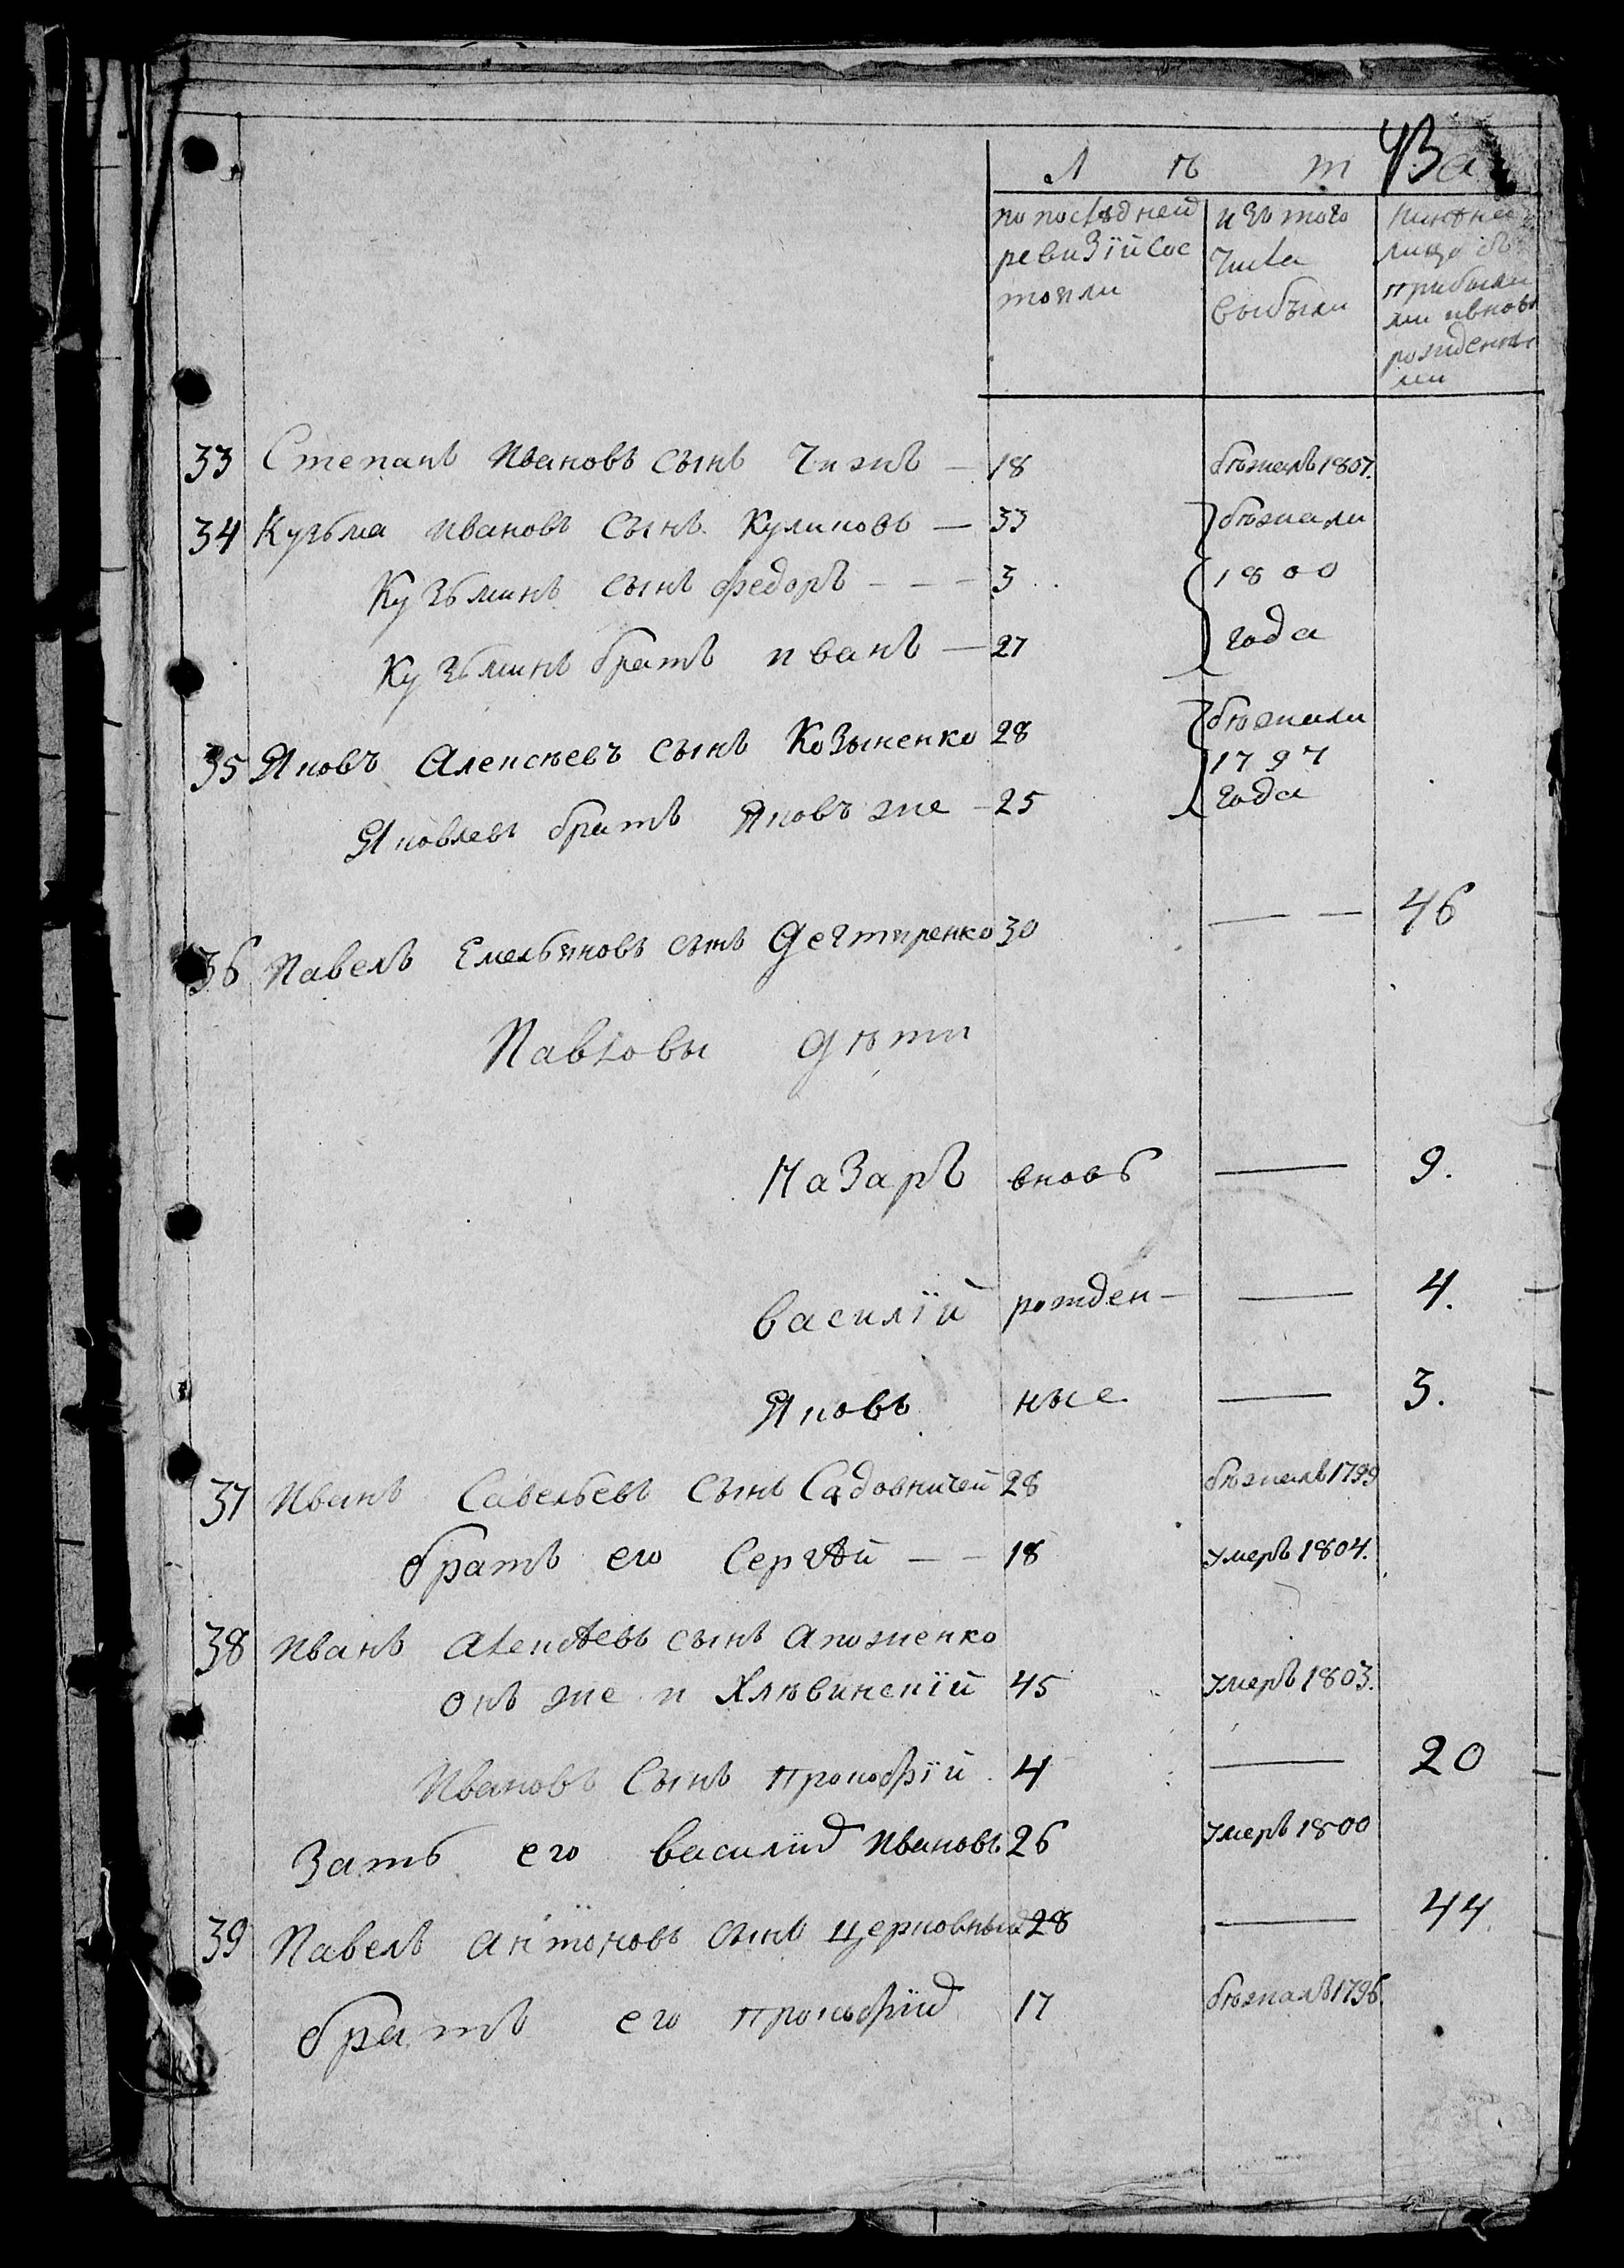 43а
л ѣ т
по последней ревизіи сос тояли
изъ того числа выбыли
ныне на лицо съ прибылы ми и вновь рожденны ми
33 Степанъ Ивановъ сынъ Чижъ — 18 бѣжалъ 1807.
34 Кузьма Ивановъ сынъ Куликовъ — 33 бѣжали
Кузьминъ сынъ Федоръ - - - 3 1800
Кузьминъ братъ Иванъ — 27 года
35 Яковъ Алексѣевъ сынъ Козыненко 28 бѣжали 1797
Яковлевъ братъ Яковъ же - 25 года
36 Павелъ Емельяновъ сынъ Дегтяренко 30 — — 46
Павловы дѣти
Назаръ вновь — 9.
Василій рожден- — 4.
Яковъ ные — 3.
37 Иванъ Савельевъ сынъ Садовничей 28 бѣжалъ 1799
братъ его Сергѣй — - 18 умеръ 1804.
38 Иванъ Алексѣевъ сынъ Апоженко
онъ же и Хлѣвинскій 45 умеръ 1803.
Ивановъ сынъ Прокофій 4 — 20
Зять его Василій Ивановъ 26 умеръ 1800
39 Павелъ Антоновъ сынъ Церковный 28 — 44
братъ его Прокофій 17 бѣжалъ 1796.